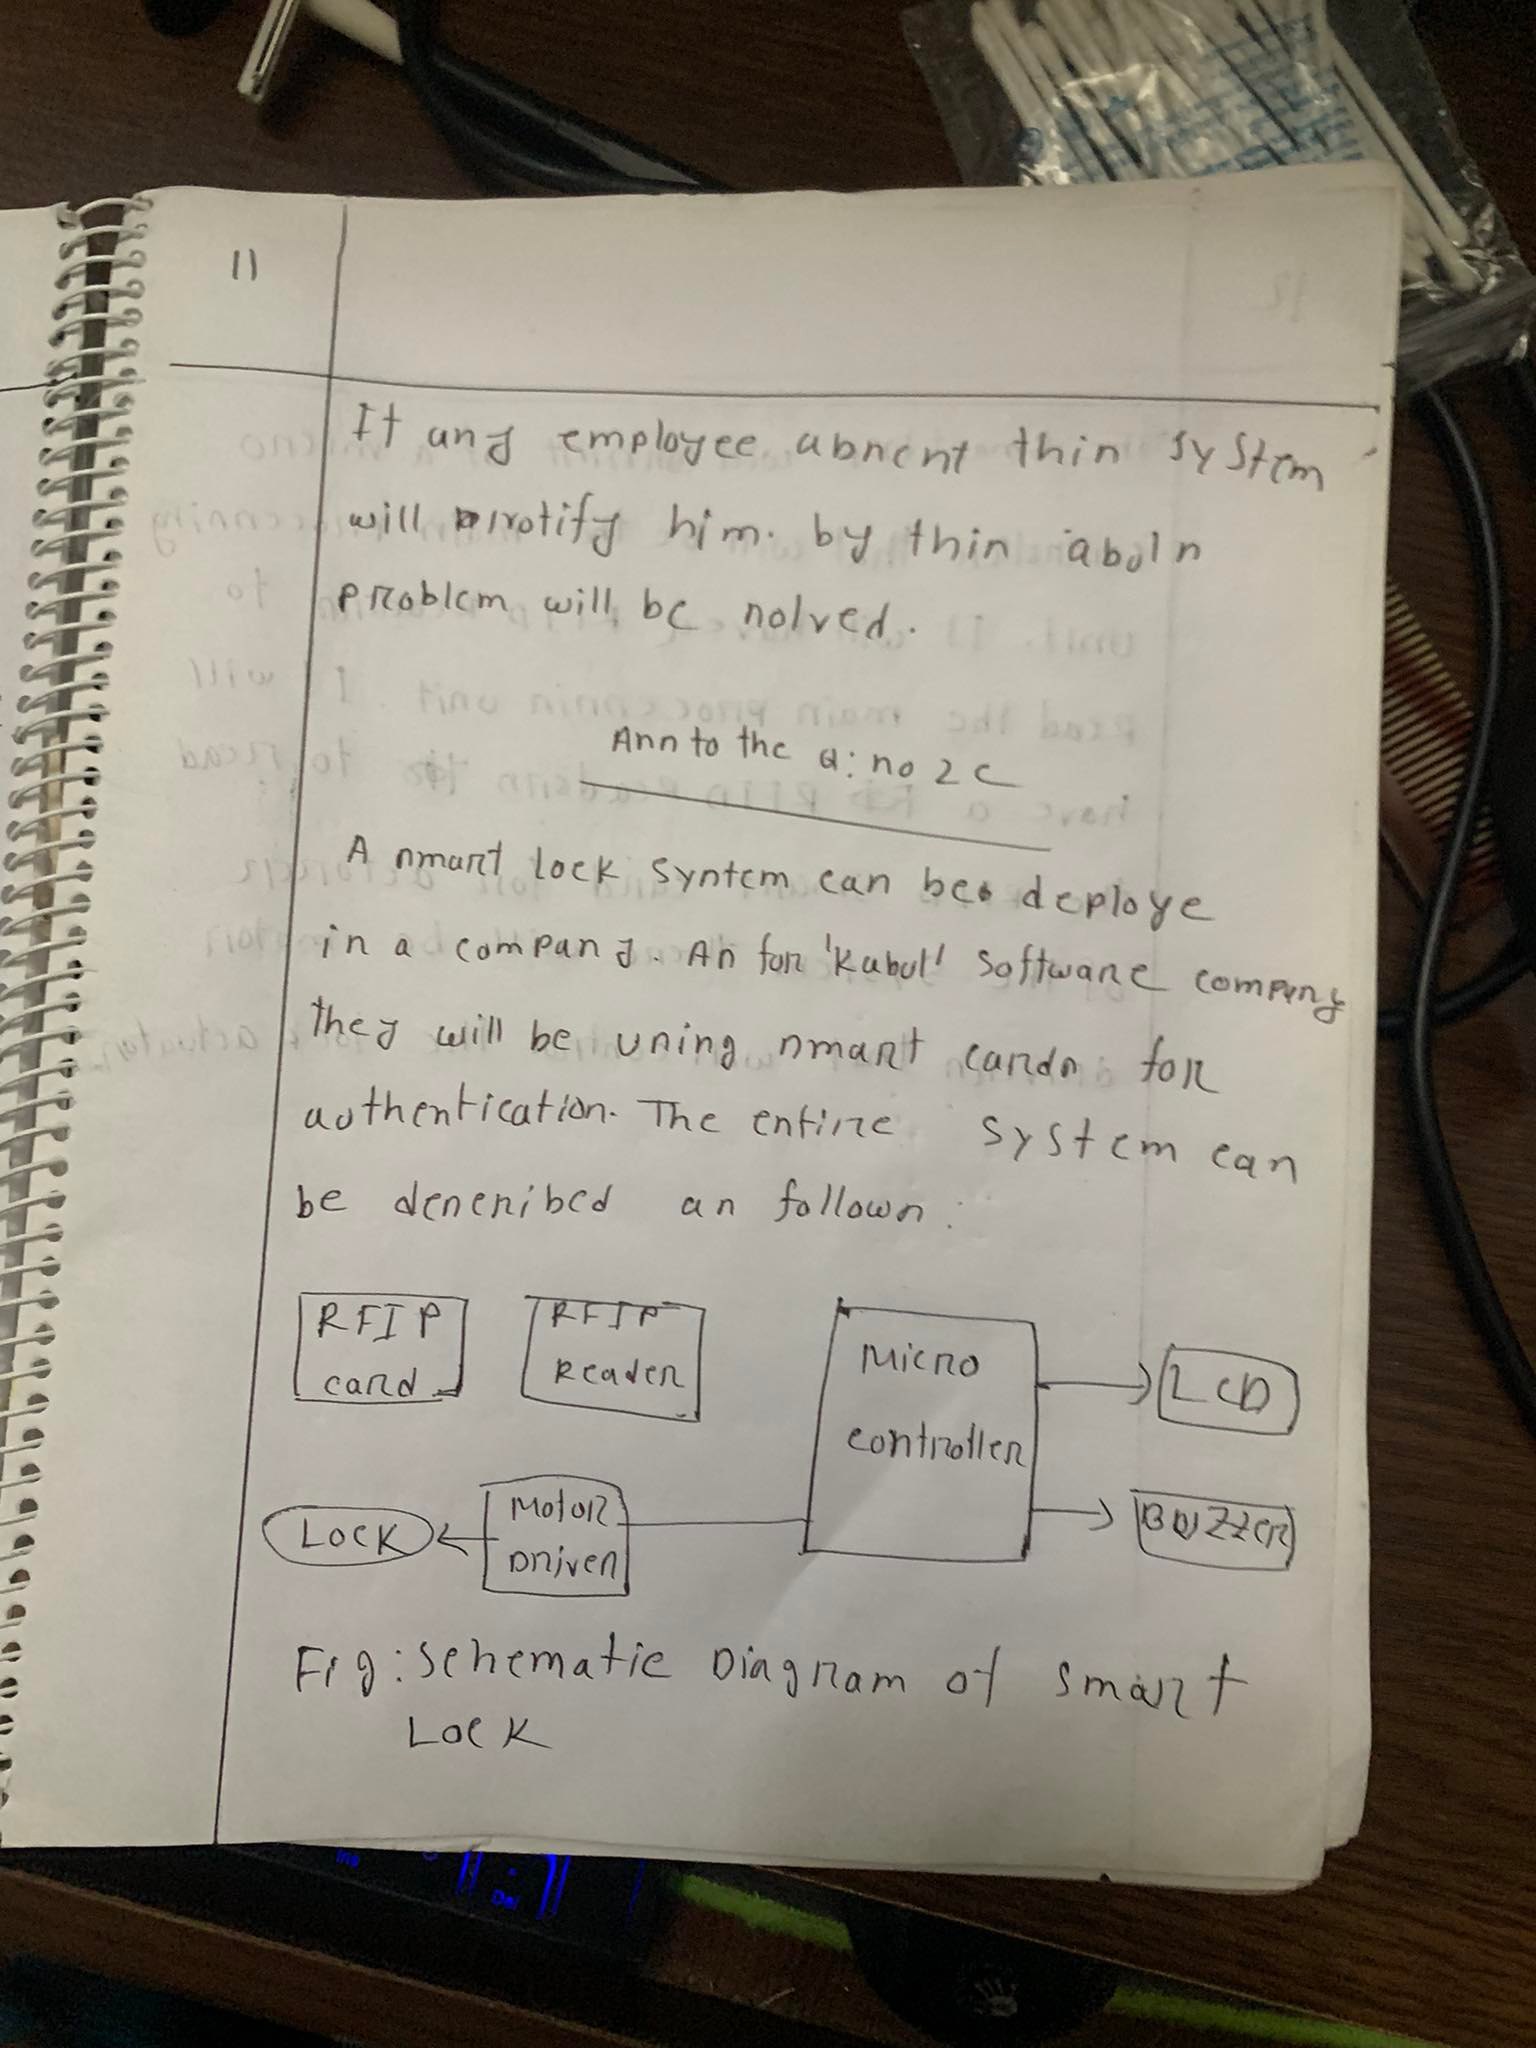 11
If any employee absent this system
will notify him. by this abuln
problem will be solved.
Ans to the Q: no 2 c
A smart lock system can be deploye
in a company. As for 'Kabul' software company
they will be using smart cards for
authentication. The entire system can
be described as follows:
RFIP
card
RFIP
Reader
Micro
controller
LCD
LOCK
Motor
Driver
BUZZER
Fig: Schematic Diagram of smart
Lock